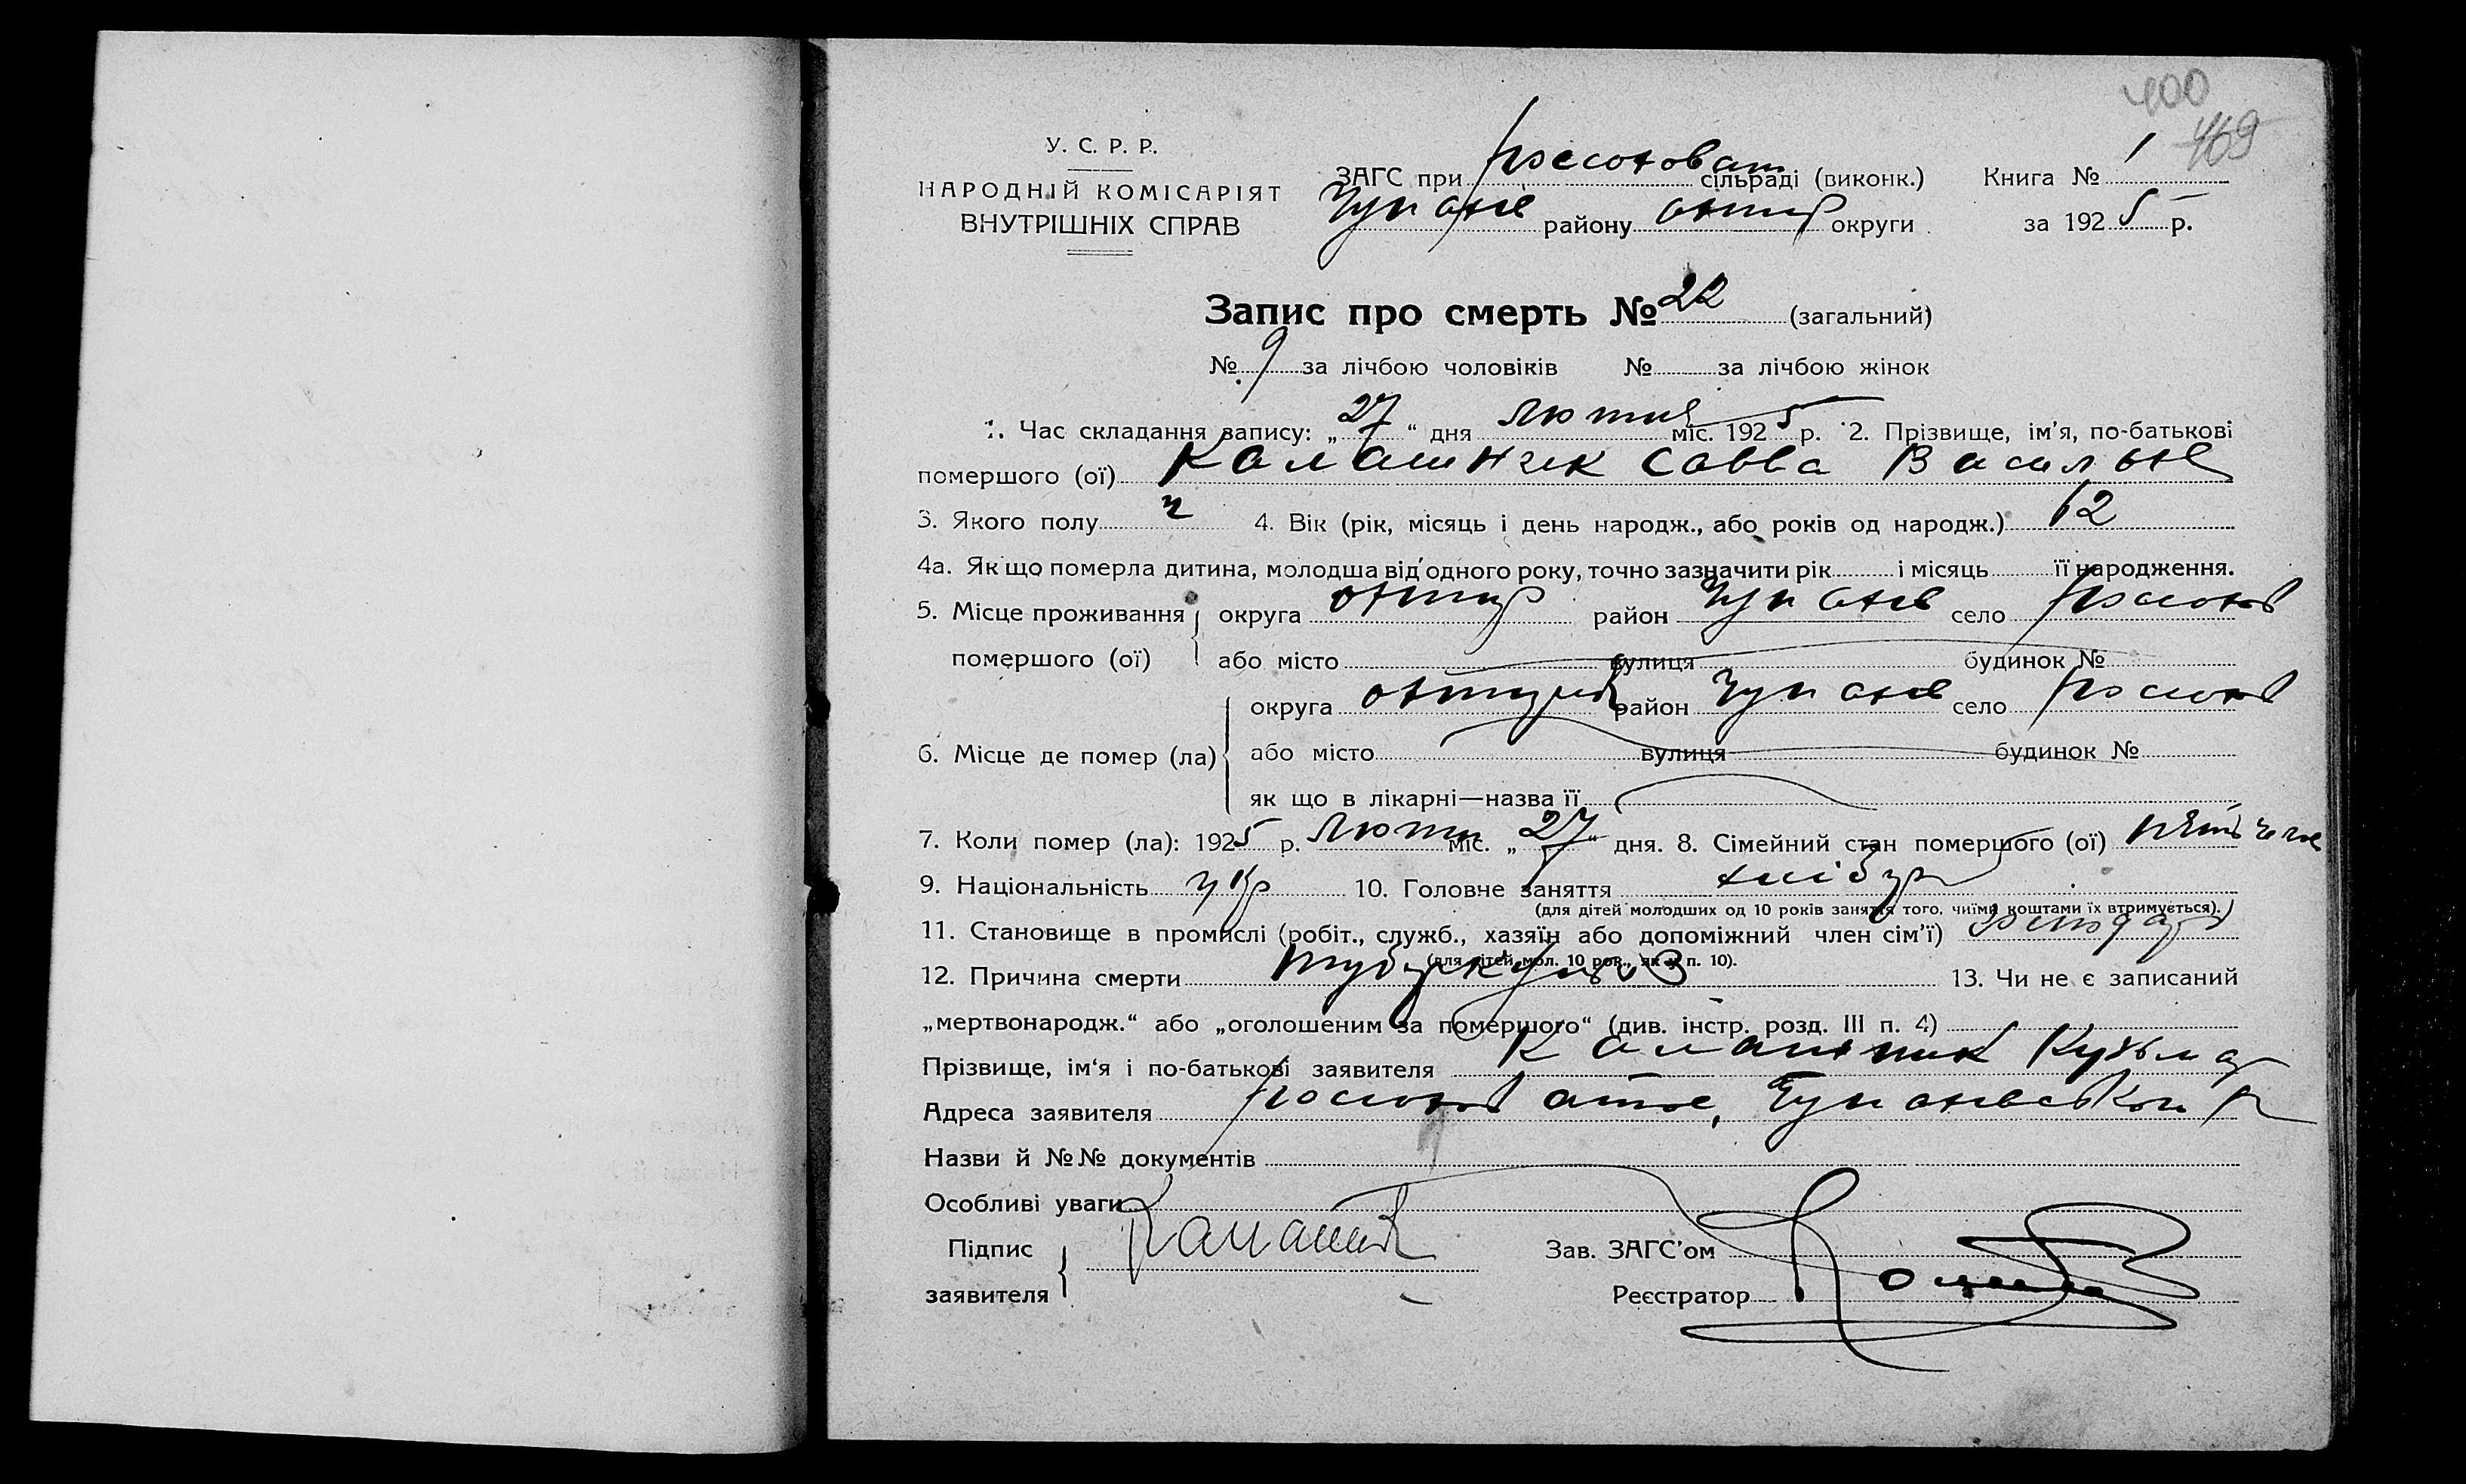 400
469
У. С. Р. Р.
НАРОДНІЙ КОМІСАРІЯТ
ВНУТРІШНІХ СПРАВ
ЗАГС при Россоховат сільраді (виконк.) Книга № 1
Чупахів району Охтир округи за 1925 р.
Запис про смерть № 22 (загальний)
№ 9 за лічбою чоловіків № за лічбою жінок
1. Час складання запису: „27“ дня Лютня міс. 1925 р. 2. Прізвище, ім’я, по-батькові
помершого (ої) Калашник Савва Васильев
3. Якого полу ч 4. Вік (рік, місяць і день народж., або років од народж.) 62
4а. Якщо померла дитина, молодша від одного року, точно зазначити рік і місяць її народження.
5. Місце проживання округа Охтир район Чупахів село Россохов
помершого (ої) або місто вулиця будинок №
округа район Чупахів село Россохов
6. Місце де помер (ла) або місто вулиця будинок №
як що в лікарні—назва її
7. Коли помер (ла): 1925 р. Лютн міс. „27“ дня. 8. Сімейний стан помершого (ої)
9. Національність Укр 10. Головне заняття хлібор
(для дітей молодших од 10 років заняття того, чиїми коштами їх втримується).
11. Становище в промислі (робіт., служб., хазяїн або допоміжний член сім’ї) господар
(для дітей мол. 10 рок., як у п. 10).
12. Причина смерти туберкульоз 13. Чи не є записаний
„мертвонародж.“ або „оголошеним за помершого“ (див. інстр. розд. III п. 4)
Прізвище, ім‘я і по-батькові заявителя Калашник Кузьма
Адреса заявителя Чупахівськой р
Назви й №№ документів
Особливі уваги
Підпис Калашник Зав. ЗАГС’ом
заявителя Реєстратор